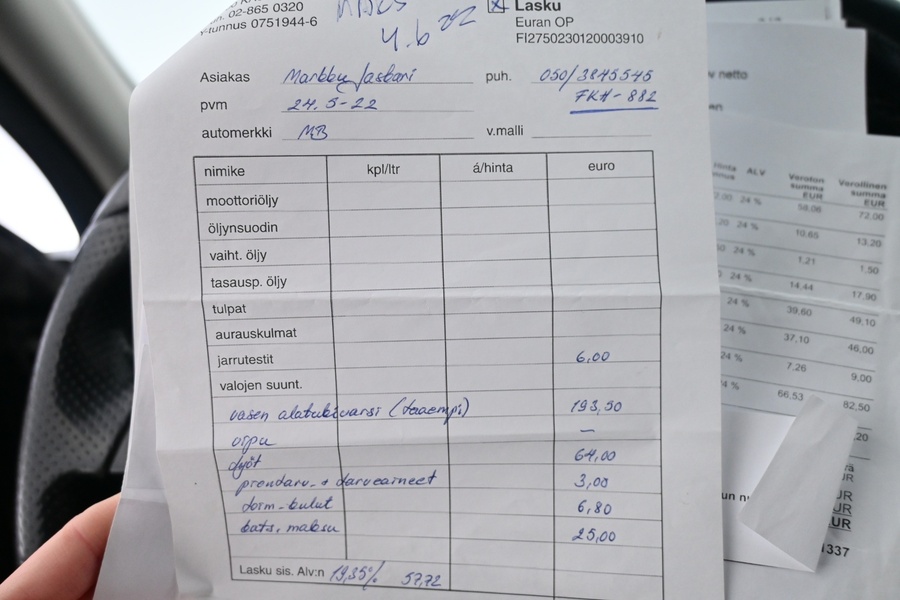 02-865 0320
Y-tunnus 0751944-6
4.6 22
Lasku
Euran OP
FI2750230120003910
Asiakas Markku puh. 050/3845545
pvm 24.5-22 FKH-882
automerkki MB v.malli
nimike kpl/ltr á/hinta euro
moottoriöljy
öljynsuodin
vaiht. öljy
tasausp. öljy
tulpat
aurauskulmat
jarrutestit 6,00
valojen suunt.
vasen alatukivarsi (taaempi) 193,50
—
työt 64,00
+ tarveaineet 3,00
6,80
kats. maksu 25,00
Lasku sis. Alv:n 19,35% 57,72
netto
Hinta ALV Veroton summa EUR Verollinen summa EUR
24 % 58,06 72,00
24 % 10,65 13,20
24 % 1,21 1,50
24 % 14,44 17,90
24 % 39,60 49,10
24 % 37,10 46,00
24 % 7,26 9,00
66,53 82,50
,20
EUR